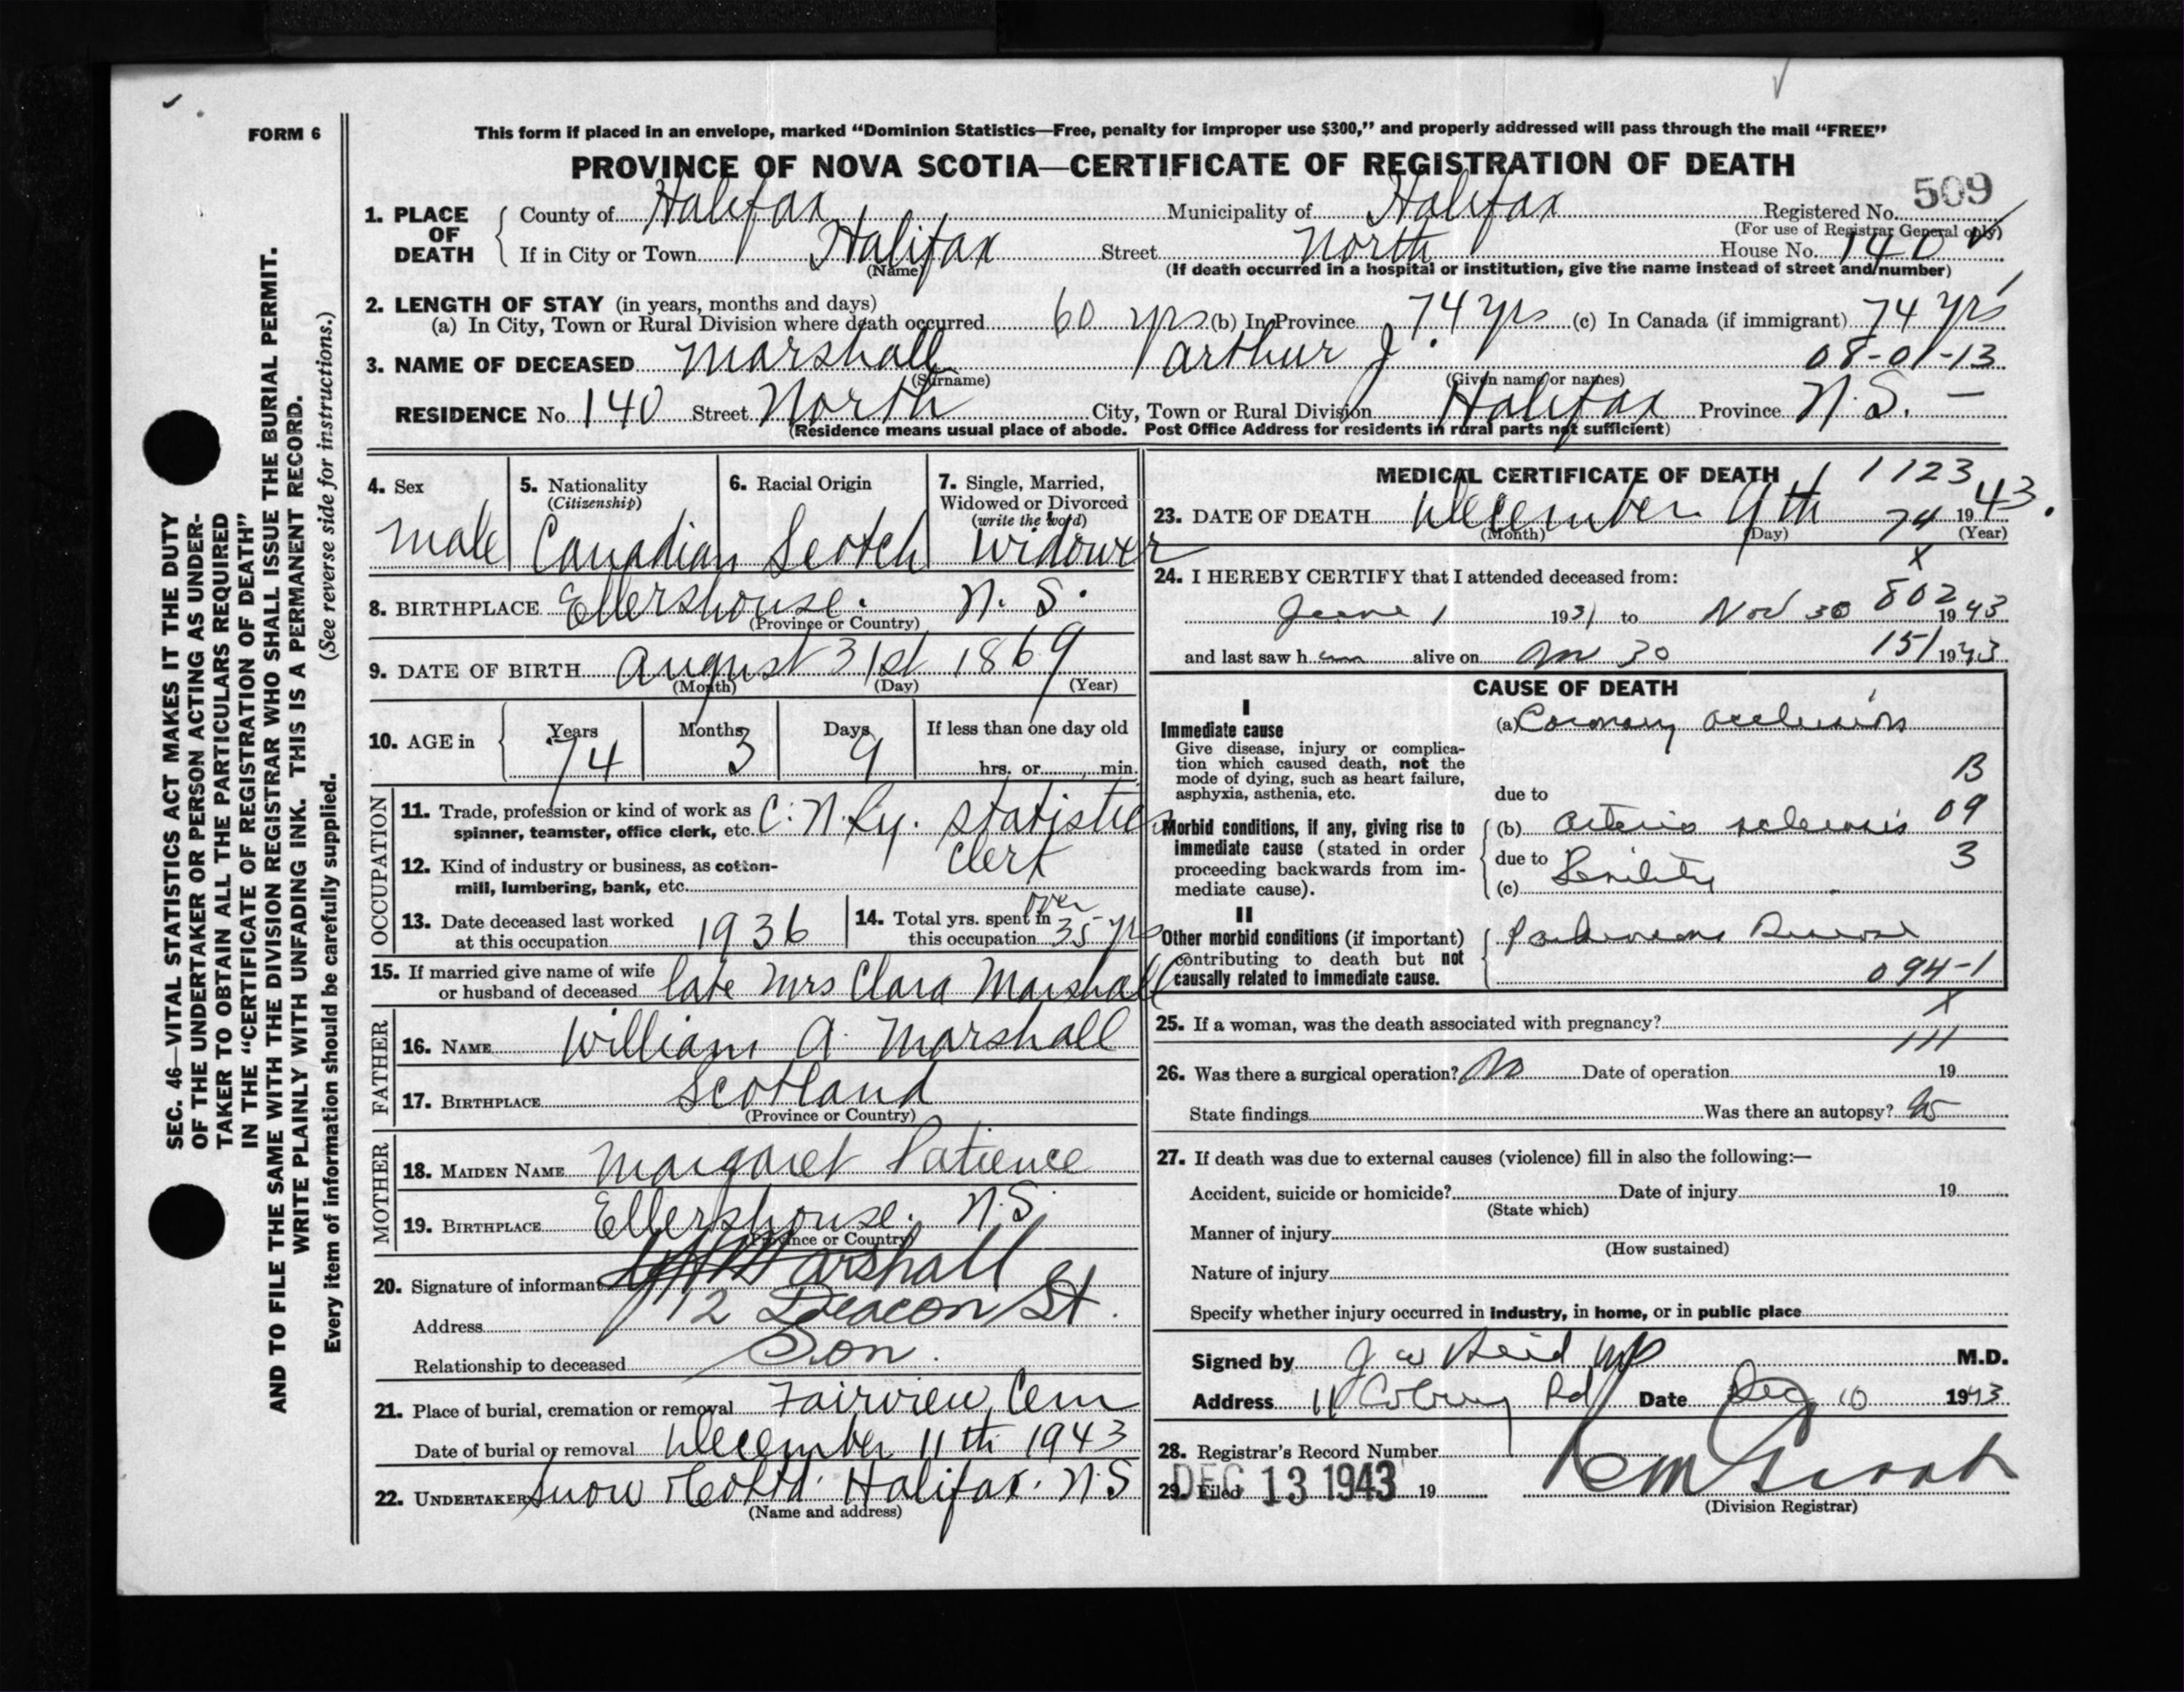 FORM 6
This form if placed in an envelope, marked “Dominion Statistics—Free, penalty for improper use $300,” and properly addressed will pass through the mail “FREE”
PROVINCE OF NOVA SCOTIA—CERTIFICATE OF REGISTRATION OF DEATH
509
1. PLACE OF DEATH
County of Halifax Municipality of Halifax Registered No.
(For use of Registrar General only)
If in City or Town Halifax Street North House No. 140
(Name) (If death occurred in a hospital or institution, give the name instead of street and number)
2. LENGTH OF STAY (in years, months and days)
(a) In City, Town or Rural Division where death occurred 60 yrs (b) In Province 74 yrs (c) In Canada (if immigrant) 74 yrs
3. NAME OF DECEASED Marshall Arthur J. 08-01-13
(Surname) (Given name or names)
RESIDENCE No. 140 Street North City, Town or Rural Division Halifax Province N.S. —
(Residence means usual place of abode. Post Office Address for residents in rural parts not sufficient)
4. Sex
Male
5. Nationality
(Citizenship)
Canadian
6. Racial Origin
Scotch
7. Single, Married,
Widowed or Divorced
(write the word)
Widower
8. BIRTHPLACE Ellershouse. N. S.
(Province or Country)
9. DATE OF BIRTH August 31st 1869
(Month) (Day) (Year)
10. AGE in Years Months Days If less than one day old
74 3 9 hrs. or min.
OCCUPATION
11. Trade, profession or kind of work as
spinner, teamster, office clerk, etc. C. N. Ry. Statistics
Clerk
12. Kind of industry or business, as cotton-
mill, lumbering, bank, etc.
13. Date deceased last worked
at this occupation 1936
14. Total yrs. spent in
this occupation over 35 yrs
15. If married give name of wife
or husband of deceased late Mrs Clara Marshall
FATHER
16. NAME William A. Marshall
17. BIRTHPLACE Scotland
(Province or Country)
MOTHER
18. MAIDEN NAME Margaret Patience
19. BIRTHPLACE Ellershouse. N.S.
(Province or Country)
20. Signature of informant Marshall
Address 12 Deacon St.
Relationship to deceased Son.
21. Place of burial, cremation or removal Fairview Cem
Date of burial or removal December 11th 1943
22. UNDERTAKER Snow & Co Ltd. Halifax. N.S
(Name and address)
MEDICAL CERTIFICATE OF DEATH 1123
23. DATE OF DEATH December 9th 74 1943.
(Month) (Day) (Year)
X
24. I HEREBY CERTIFY that I attended deceased from:
June 1 1931 to Nov 30 802 1943
and last saw h im alive on Nov 30 151 1943
CAUSE OF DEATH
I
Immediate cause
Give disease, injury or complica-
tion which caused death, not the
mode of dying, such as heart failure,
asphyxia, asthenia, etc.
(a) Coronary occlusion
B
due to
Morbid conditions, if any, giving rise to
immediate cause (stated in order
proceeding backwards from im-
mediate cause).
(b) Arterio sclerosis 09
due to
3
(c) Senility
II
Other morbid conditions (if important)
contributing to death but not
causally related to immediate cause.
Parkinsons Disease
094-1
X
25. If a woman, was the death associated with pregnancy?
111
26. Was there a surgical operation? No Date of operation 19
State findings Was there an autopsy? No
27. If death was due to external causes (violence) fill in also the following:—
Accident, suicide or homicide? Date of injury 19
(State which)
Manner of injury
(How sustained)
Nature of injury
Specify whether injury occurred in industry, in home, or in public place
Signed by J W Reid MD M.D.
Address 11 Coburg Rd Date Dec 10 1943
28. Registrar's Record Number
29. Filed DEC 13 1943 19
(Division Registrar)
SEC. 46—VITAL STATISTICS ACT MAKES IT THE DUTY
OF THE UNDERTAKER OR PERSON ACTING AS UNDER-
TAKER TO OBTAIN ALL THE PARTICULARS REQUIRED
IN THE “CERTIFICATE OF REGISTRATION OF DEATH”
AND TO FILE THE SAME WITH THE DIVISION REGISTRAR WHO SHALL ISSUE THE BURIAL PERMIT.
WRITE PLAINLY WITH UNFADING INK. THIS IS A PERMANENT RECORD.
Every item of information should be carefully supplied. (See reverse side for instructions.)